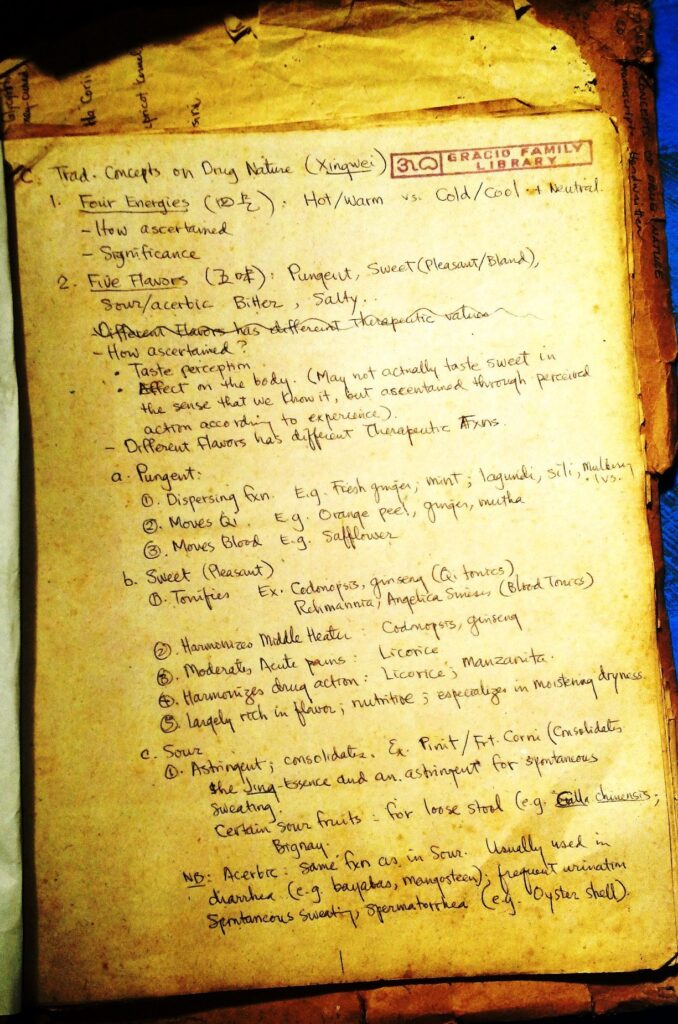 Ha Corii
apricot kernel
CONCEPTS OF DRUG NATURE
C. Trad. Concepts on Drug Nature (Xingwei)
GRACIO FAMILY
LIBRARY
1. Four Energies (四气): Hot/Warm vs. Cold/Cool + Neutral.
- How ascertained
- Significance
2. Five Flavors (五味): Pungent, Sweet (Pleasant/Bland),
Sour/acerbic Bitter, Salty.
Different Flavors has different Therapeutic values
- How ascertained?
• Taste perception
• Effect on the body. (May not actually taste sweet in
the sense that we know it, but ascentained through perceived
action according to experience).
- Different Flavors has different Therapeutic Fxns.
a. Pungent:
①. Dispersing fxn. E.g. Fresh ginger, mint; lagundi, sili, Mulberry
lvs.
②. Moves Qi. E.g. Orange peel, ginger, mutha
③. Moves Blood E.g. Safflower
b. Sweet (Pleasant)
①. Tonifies Ex. Codonopsis, ginseng (Qi tonics)
Rehmannia, Angelica Sinesis (Blood Tonics)
②. Harmonizes Middle Heater: Codonopsis, ginseng
③. Moderates Acute pains: Licorice
④. Harmonizes drug action: Licorice; Manzanita.
⑤. Largely rich in flavor; nutritive; especializes in moistening dryness.
c. Sour
①. Astringent; consolidates. Ex. Frt. Corni (Consolidates
the Jing-Essence and an astringent for spontaneous
sweating.
Certain sour fruits = for loose stool (e.g. Galla chinensis;
Bignay.
NB: Acerbic: same fxn as in Sour. Usually used in
diarrhea (e.g. bayabas, mangosteen); frequent urination
Spontaneous sweating, spermatorrhea (e.g. Oyster shell).